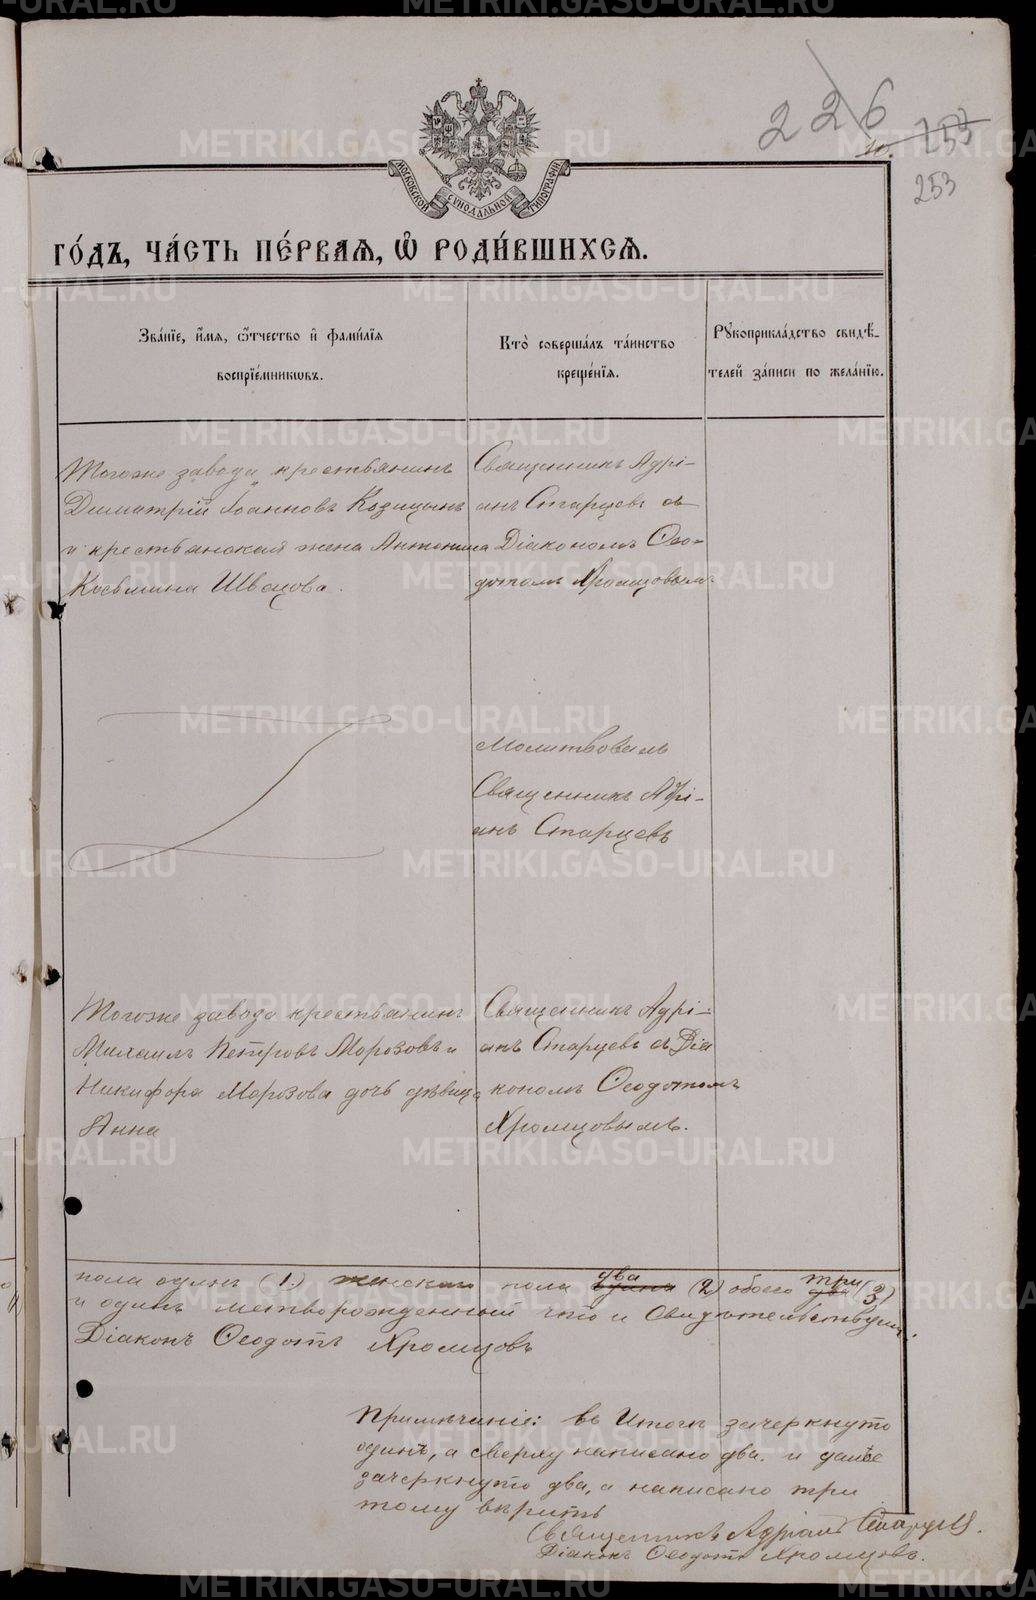 226
10. 253
253
МОСКОВСКОЙ СѴНОДАЛЬНОЙ ТИПОГРАФІИ
ГО́ДЪ, ЧА́СТЬ ПЕ́РВАѦ, Ѽ РОДИ́ВШИХСѦ.
Зва́нїе, и́мѧ, ѻ҆́тчество и҆ фами́лїѧ
воспрїе́мникѡвъ.
Кто̀ соверша́лъ та́инство
креще́нїѧ.
Рꙋкоприкла́дство свидѣ́-
телей за́писи по жела́нїю.
Тогоже завода крестьянинъ
Димитрій Іоанновъ Козицынъ
и крестьянская жена Антонина
Косьмина Швецова.
Священникъ Адрі-
анъ Старцевъ съ
Діакономъ Ѳео-
дотомъ Хромцовымъ
Молитвовалъ
Священникъ Адрі-
анъ Старцевъ
Тогоже завода крестьянинъ
Михаилъ Петровъ Морозовъ и
Никифора Морозова дочь дѣвица
Анна
Священникъ Адрі-
анъ Старцевъ съ Діа
кономъ Ѳеодотомъ
Хромцовымъ.
пола одинъ (1.) женскаго пола два (2) обоего два три (3)
и одинъ мертворожденный что и свидѣтельствуемъ.
Діаконъ Ѳеодотъ Хромцовъ
Примѣчаніе: въ Итогѣ зачеркнуто
одинъ, а сверху написано два. и далѣе
зачеркнуто два, а написано три
тому вѣрить
Священникъ Адріанъ Старцевъ.
Діаконъ Ѳеодотъ Хромцовъ.
METRIKI.GASO-URAL.RU